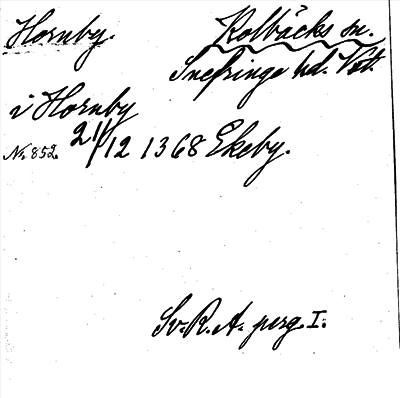 Hornby. Kolbäcks sn.
Snefringe hd. Vstl.
i Hornby
Nr 852. 21/12 1368 Ekeby.
Sv. R. A. perg. I.